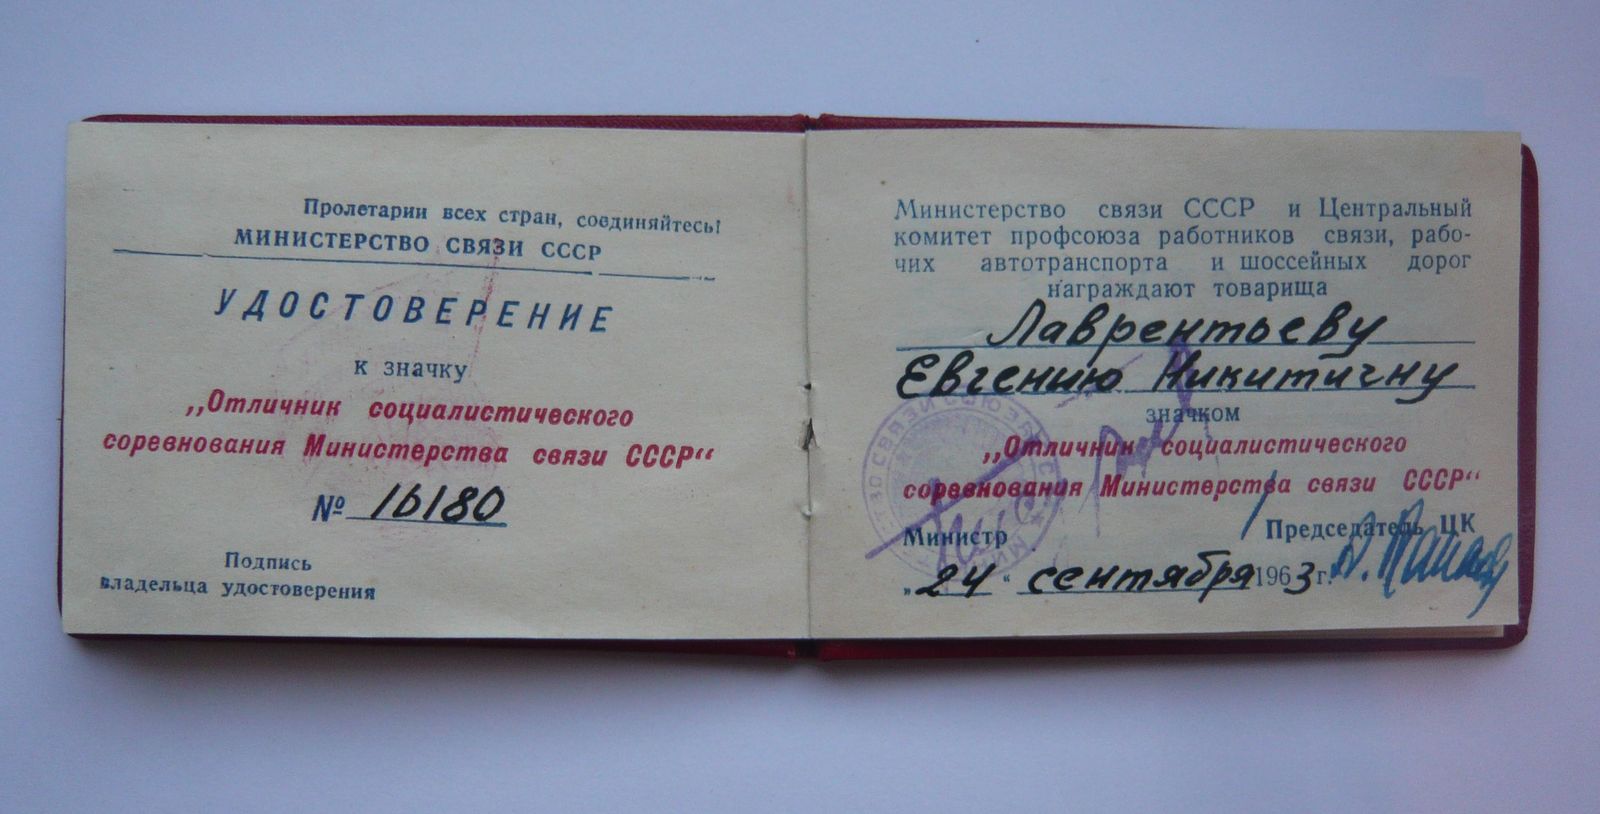 Пролетарии всех стран, соединяйтесь!
МИНИСТЕРСТВО СВЯЗИ СССР
УДОСТОВЕРЕНИЕ
к значку
„Отличник социалистического
соревнования Министерства связи СССР“
№ 16180
Подпись
владельца удостоверения
Министерство связи СССР и Центральный
комитет профсоюза работников связи, рабо-
чих автотранспорта и шоссейных дорог
награждают товарища
Лаврентьеву
Евгению Никитичну
значком
„Отличник социалистического
соревнования Министерства связи СССР“
Министр
Председатель ЦК
„24“ сентября 1963 г.